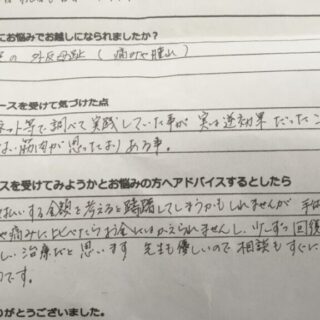 にお悩みでお越しになられましたか？
の 外反母趾 （痛みや腫れ）
ースを受けて気づいた点
ネット等で調べて実践していた事が 実は逆効果だったこ
ない筋肉が思ったよりある事。
スを受けてみようかとお悩みの方へアドバイスするとしたら
払いする金額を考えると躊躇してしまうかもしれませんが 手術
や痛みに比べたらお金にはかえられませんし、少しずつ回復
しい治療だと思います 先生も優しいので相談もすぐに
のです。
りがとうございました。